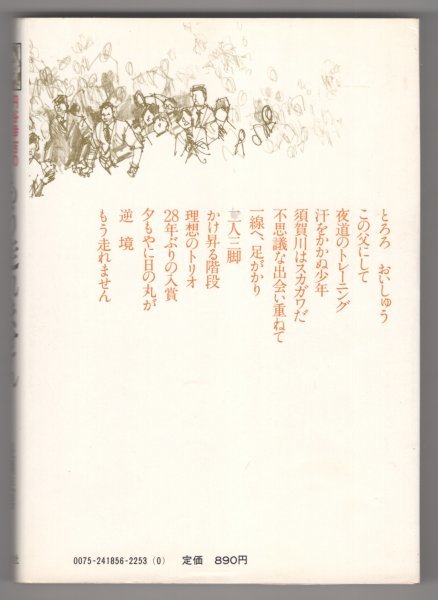 とろろ おいしゅう
この父にして
夜道のトレーニング
汗をかかぬ少年
須賀川はスカガワだ
不思議な出会い重ねて
一線へ、足がかり
二人三脚
かけ昇る階段
理想のトリオ
28年ぶりの入賞
夕もやに日の丸が
逆境
もう走れません
0075-241856-2253 (0) 定価 890円